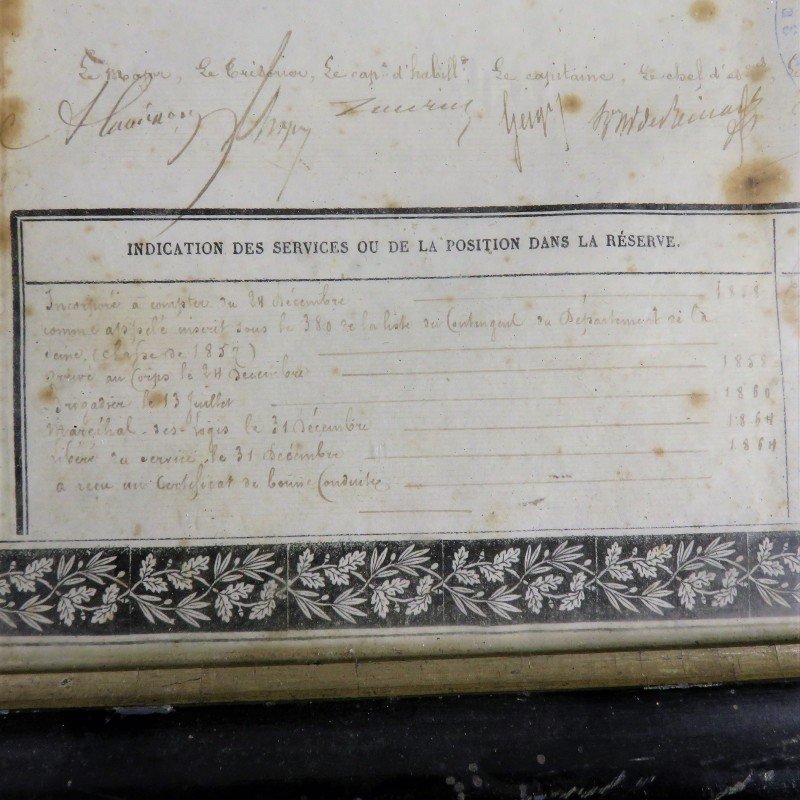 Le Major, Le Trésorier, Le cap.e d'habill.t Le capitaine, Le chef d'es
INDICATION DES SERVICES OU DE LA POSITION DANS LA RÉSERVE.
Incorporé à compter du 24 Décembre 1858
comme appelé inscrit sous le 380 de la liste du Contingent du Département de la
Seine, (classe de 1857)
Arrivé au Corps le 24 Décembre 1858
Brigadier le 13 Juillet 1860
Maréchal des logis le 31 Décembre 1864
Libéré du service le 31 Décembre 1864
a reçu un Certificat de bonne Conduite